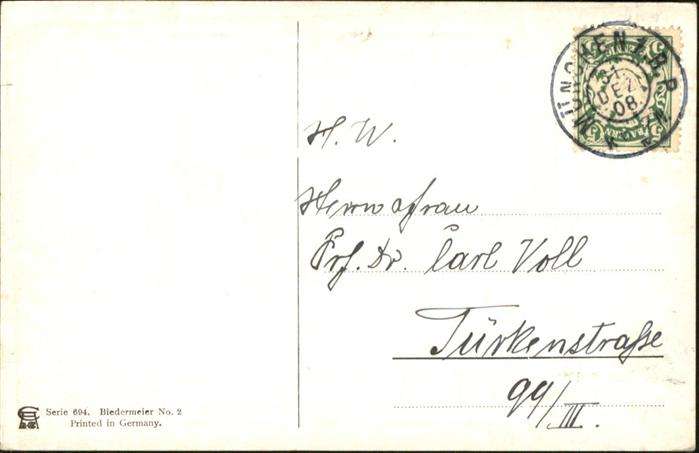 MÜNCHEN 2. B.P.
31.
DEZ.
08
BAYERN
H. W.
Herrn & Frau
Prf. Dr. Carl Voll
Türkenstraße
99/III.
Serie 694. Biedermeier No. 2
Printed in Germany.